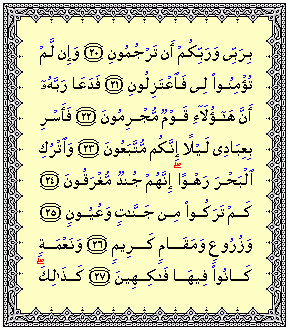 بِرَبِّى وَرَبِّكُمْ أَن تَرْجُمُونِ ٢٠ وَإِن لَّمْ
تُؤْمِنُوا۟ لِى فَٱعْتَزِلُونِ ٢١ فَدَعَا رَبَّهُۥٓ
أَنَّ هَـٰٓؤُلَآءِ قَوْمٌ مُّجْرِمُونَ ٢٢ فَأَسْرِ
بِعِبَادِى لَيْلًا إِنَّكُم مُّتَّبَعُونَ ٢٣ وَٱتْرُكِ
ٱلْبَحْرَ رَهْوًا ۖ إِنَّهُمْ جُندٌ مُّغْرَقُونَ ٢٤
كَمْ تَرَكُوا۟ مِن جَنَّـٰتٍ وَعُيُونٍ ٢٥
وَزُرُوعٍ وَمَقَامٍ كَرِيمٍ ٢٦ وَنَعْمَةٍ
كَانُوا۟ فِيهَا فَـٰكِهِينَ ٢٧ كَذَٰلِكَ ۖ